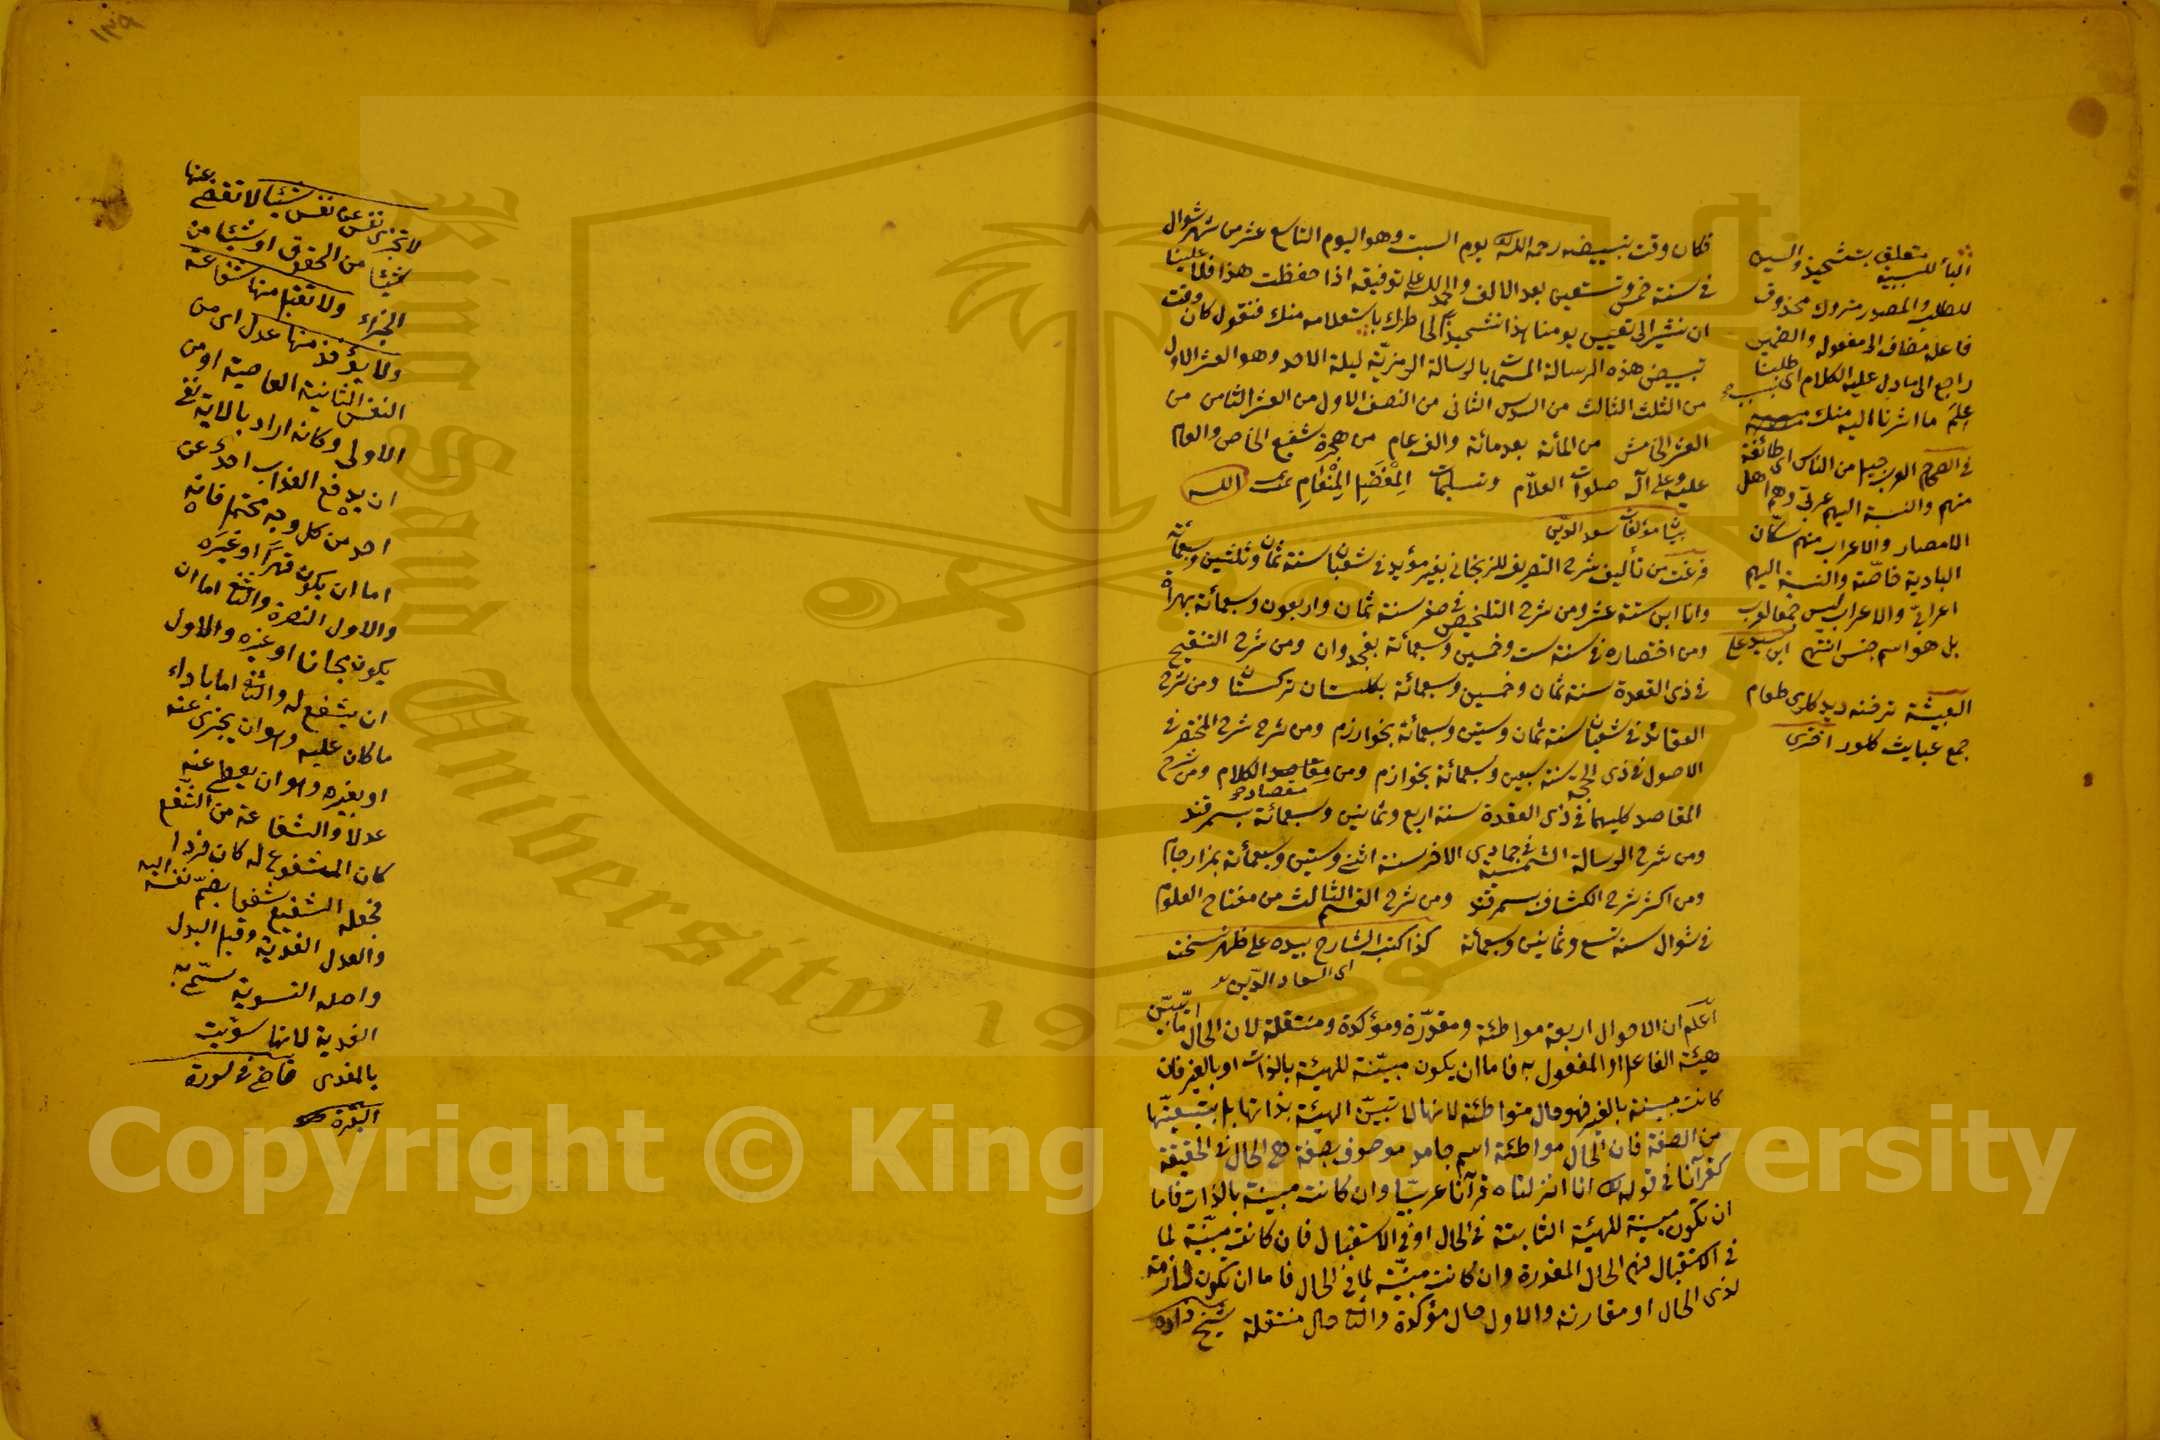 فكان وقت تبييضه رحمه الله يوم السبت وهو اليوم التاسع عشر من شهر شوال
في سنة خمس وتسعين بعد الالف والحمد لله على توفيقه اذا حفظت هذا فلما علينا
ان نشير الى تعيين يومنا هذا تشحيذا لخاطرك باستعلامه منك فنقول كان وقت
تبييض هذه الرسالة المسمات بالرسالة الرمزيّة ليلة الاحد وهو العشر الاول
من الثلث الثالث من السدس الثاني من النصف الاول من العشر الثامن من
العشر الخامس من المائة بعد مائة والف عام من هجرة شفيع الخاص والعام
عليه وعلى آله صلوات العلاّم وتسليمات المِفْضَلِ المِنْعَامِ تمت
بيان مؤلفات سعد الدين
فرغت من تأليف شرح التصريف للزنجاني بغير مؤيد في شعبان سنة ثمان وثلثين وسبعمائة
وانا ابن ستة عشر ومن شرح التلخيص في صفر سنة ثمان واربعون وسبعمائة بهراة
ومن اختصاره في سنة ست وخمسين وسبعمائة بغجدوان ومن شرح التنقيح
في ذي القعدة سنة ثمان وخمسين وسبعمائة بكلستان تركستان ومن شرح
العقائد في شعبان سنة ثمان وستين وسبعمائة بخوارزم ومن شرح شرح المختصر في
الاصول في ذي الحجة سنة سبعين وسبعمائة بخوارزم ومن مقاصد الكلام ومن شرح
المقاصد كليهما في ذي القعدة سنة اربع وثمانين وسبعمائة بسمرقند
ومن شرح الرسالة الشمسية في جمادى الاخر سنة اثني وستين وسبعمائة بمزار جام
ومن اكثر شرح الكشاف بسمرقند ومن شرح القسم الثالث من مفتاح العلوم
في شوال سنة تسع وثمانين وسبعمائة كذا كتب الشارح بيده على ظهر نسخته
اى السعد الدين
اعلم ان الاحوال اربعة مواطئة ومقدّرة ومؤكدة ومنتقلة لان الحال ما يبيّن
هيئة الفاعل او المفعول به فاما ان يكون مبيّنة للهيئة بالذات او بالغير فان
كانت مبينة بالغير فهو حال مواطئة لانها لا تبيّن الهيئة بذاتها بل بتبعيّتها
من الصفة فان الحال مواطئة اسم جامد موصوف بصفة هي الحال في الحقيقة
كقرآنا في قوله انا انزلناه قرآنا عربيّا وان كانت مبينة بالذات فاما
ان تكون مبينة للهيئة الثابتة في الحال او في الاستقبال فان كانت مبيّنة لما
في الاستقبال فهم الحال المقدرة وان كانت مبيّنة لما في الحال فاما ان تكون لازمة
لذي الحال او مقارنة والاول حال مؤكدة والثا حال منتقلة شيخ زاده
الباء للسببية متعلق بتشحيذ والسين
للطلب والمصدر متروك محذوف
فاعله مضاف الى مفعوله والضمير
راجع الى ما دل عليه الكلام اى طلبنا
علم ما اشرنا اليه منك
في الصحاح العرب جيل من الناس اى طائفة
منهم والنسبة اليهم عربيّ وهم اهل
الامصار والاعراب منهم سكّان
البادية خاصّة والنسبة اليهم
اعرابيّ والاعراب ليس جمعا لعرب
بل هو اسم جنس انتهى ابن سيد على
العبيثة ترخنه ديد كلرى طعام
جمع عبايث كلور اخترى
١٣٩
لا تجزى نفس عن نفس شيئا لا تقضى عنها
شيئا من الحقوق او شيئا من
الجزاء ولا تقبل منها شفاعة
ولا يؤخذ منها عدل اى من
النفس الثانية العاصية او من
الاولى وكانه اراد بالاية نفى
ان يدفع العذاب احد عن
احد من كل وجه محتمل فانه
اما ان يكون قهرا او غيره
والاول النصرة والثا اما ان
يكون مجانا او غيره والاول
ان يشفع له والثا اما باداء
ما كان عليه وهو ان يجزى عنه
او بغيره وهو ان يعطى عنه
عدلا والشفاعة من الشفع
كان المشفوع له كان فردا
فجعله الشفيع شفعا بضمّ نفسه اليه
والعدل الفدية وقيل البدل
واصله التسوية سمّى به
الفدية لانها سوّيت
بالمفدى قاضى في سورة
البقرة